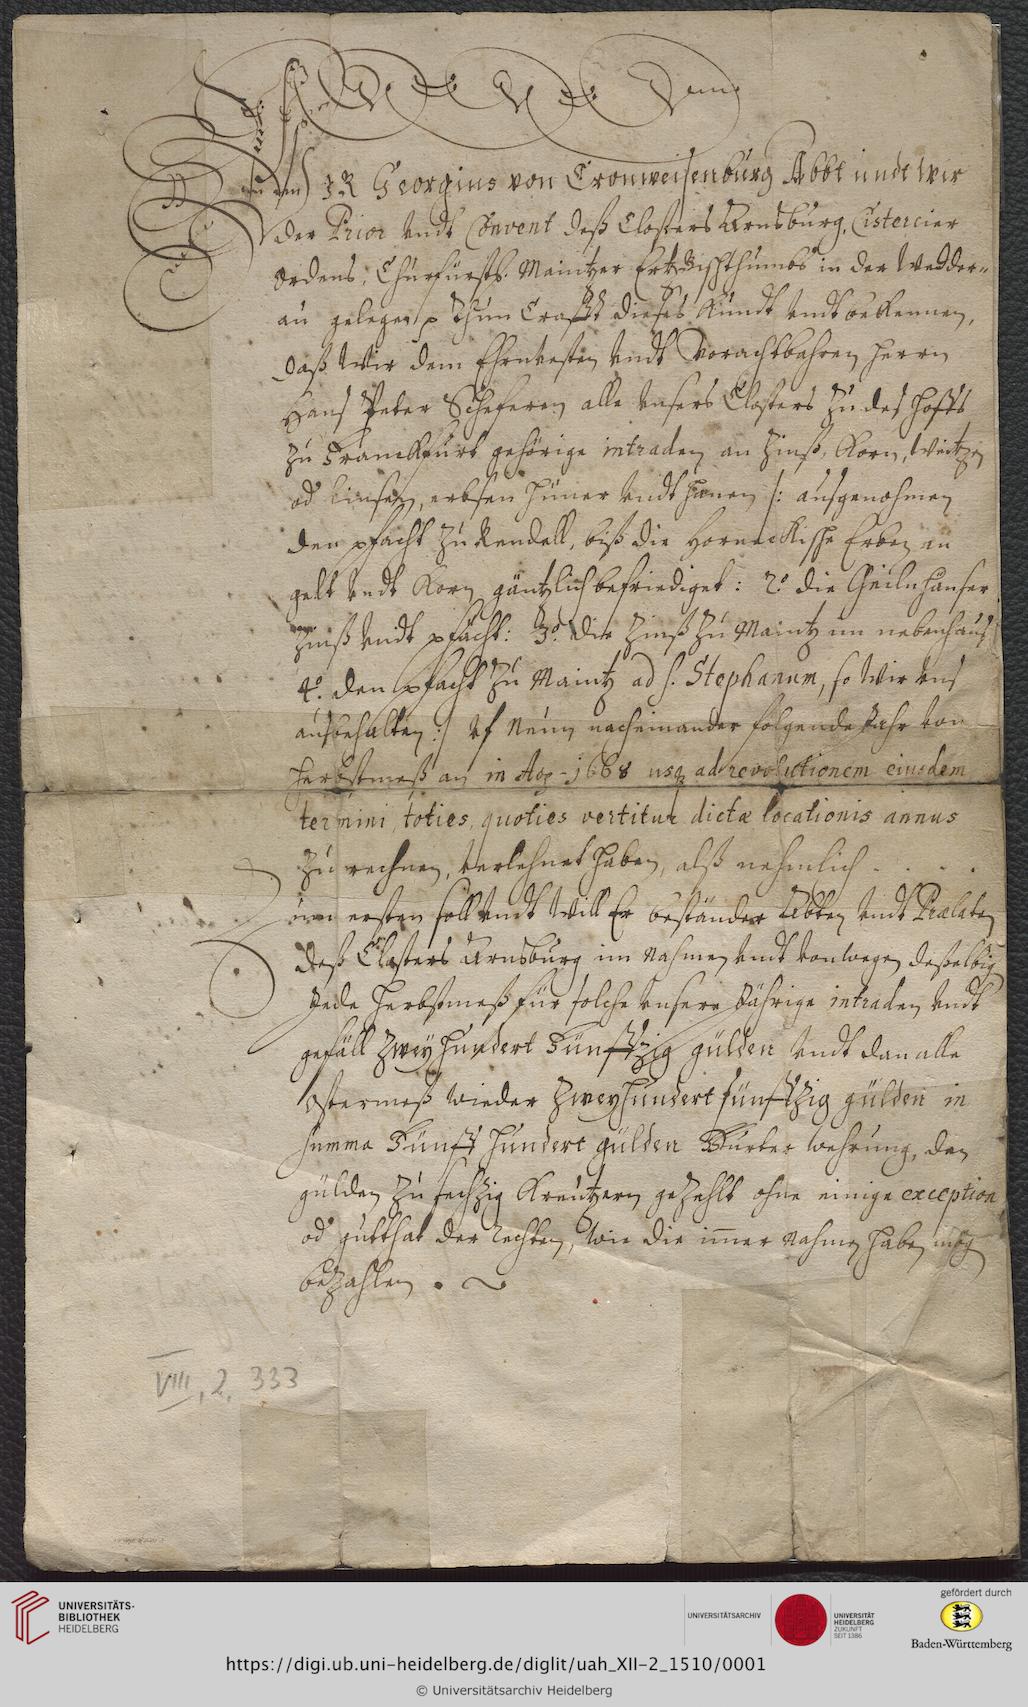 WIR Georgius von Cronweisenburg Abbt undt Wir
der Prior undt Convent deß Closters Arnsburg, Cistercier
Ordens, Churfürstl. Maintzer Ertzbissthumbs in der Wedder-
au gelegen thun Crafft dieses kundt undt bekennen,
daß Wir dem Ehrnvesten undt Vorachtbahren Herrn
Hans Peter Scheferen alle unsers Closters zu des Hoffs
zu Franckfurt gehörige intraden an Zinß, Korn, Weitzen
od Linsen, erbsen Hüner undt Hanen /: ausgenohmen
den pfacht zu Rendell, biß die Horneckische Erben an
gelt undt Korn gäntzlich befriediget: 2º die Geilnhäuser
Zinß undt pfächt: 3º die Zinß zu Maintz im nebenhauß
4º. den pfacht zu Maintz ad S. Stephanum, so Wir uns
ausbehalten :/ uf Neun nacheinander folgende Jahr von
Herbstmeß an in Aō 1688 usq ad revolutionem eiusdem
termini, toties, quoties vertitur dictæ locationis annus
zu rechnen, verlehnet haben, alß nehmlich . . . .
zum ersten soll undt will Er beständer Abten undt Prælaten
deß Closters Arnsburg im Nahmen undt von wegen deßelbig
Jede Herbstmeß für solche unsere Jährige intraden undt
gefäll Zwey Hundert Fünffzig gülden undt dan alle
Ostermeß wieder Zweyhundert fünffzig gülden in
summa Fünff Hundert gülden Wehrung, den
gülden zu sechzig Kreutzern gezehlt ohne einige exception
od gutthat der rechten, wie die immer Nahmen haben mög
bezahlen . ~
VIII, 2, 333
UNIVERSITÄTS-
BIBLIOTHEK
HEIDELBERG
UNIVERSITÄTSARCHIV
UNIVERSITÄT
HEIDELBERG
ZUKUNFT
SEIT 1386
gefördert durch
Baden-Württemberg
https://digi.ub.uni-heidelberg.de/diglit/uah_XII-2_1510/0001
© Universitätsarchiv Heidelberg